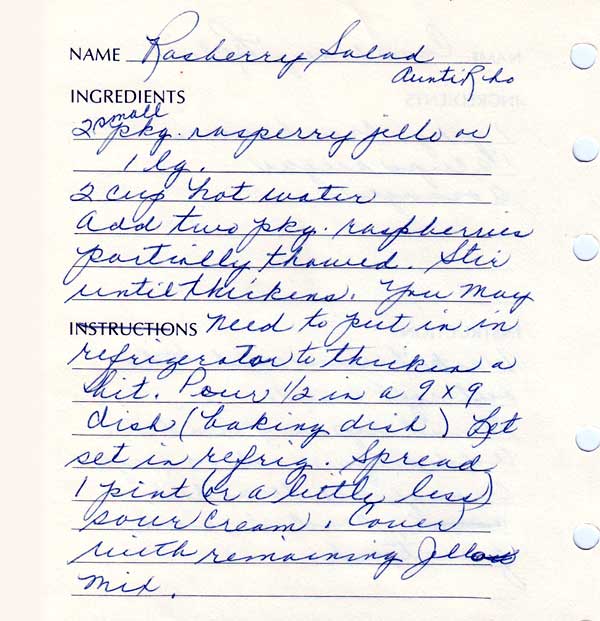 NAME Rasberry Salad
Aunti Rho
INGREDIENTS
2 small pkg. rasperry jello or
1 lg.
2 cup hot water
Add two pkg. raspberries
partially thawed. Stir
until thickens. You may
INSTRUCTIONS need to put in in
refrigerator to thicken a
bit. Pour 1/2 in a 9 x 9
dish (baking dish) Let
set in refrig. Spread
1 pint (or a little less)
sour cream. Cover
with remaining Jello
mix.